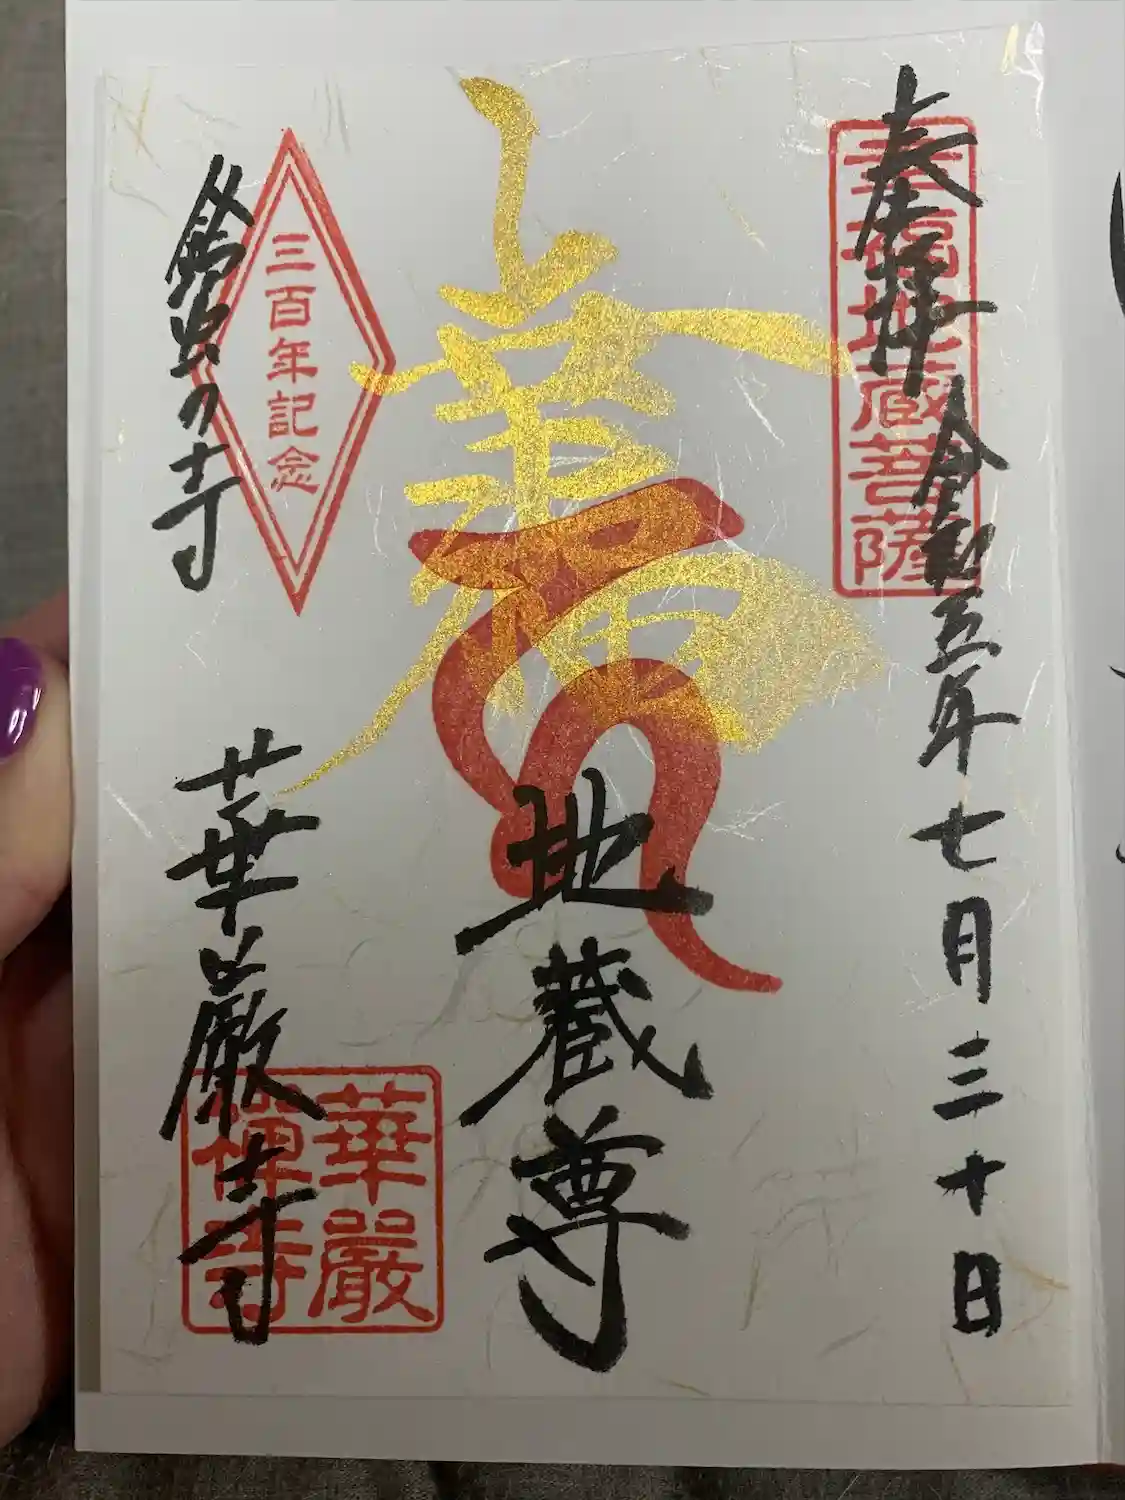 奉拝 令和五年七月三十日
幸福地蔵菩薩
幸福
地蔵尊
三百年記念
鈴虫の寺
華厳寺
華嚴
禅寺